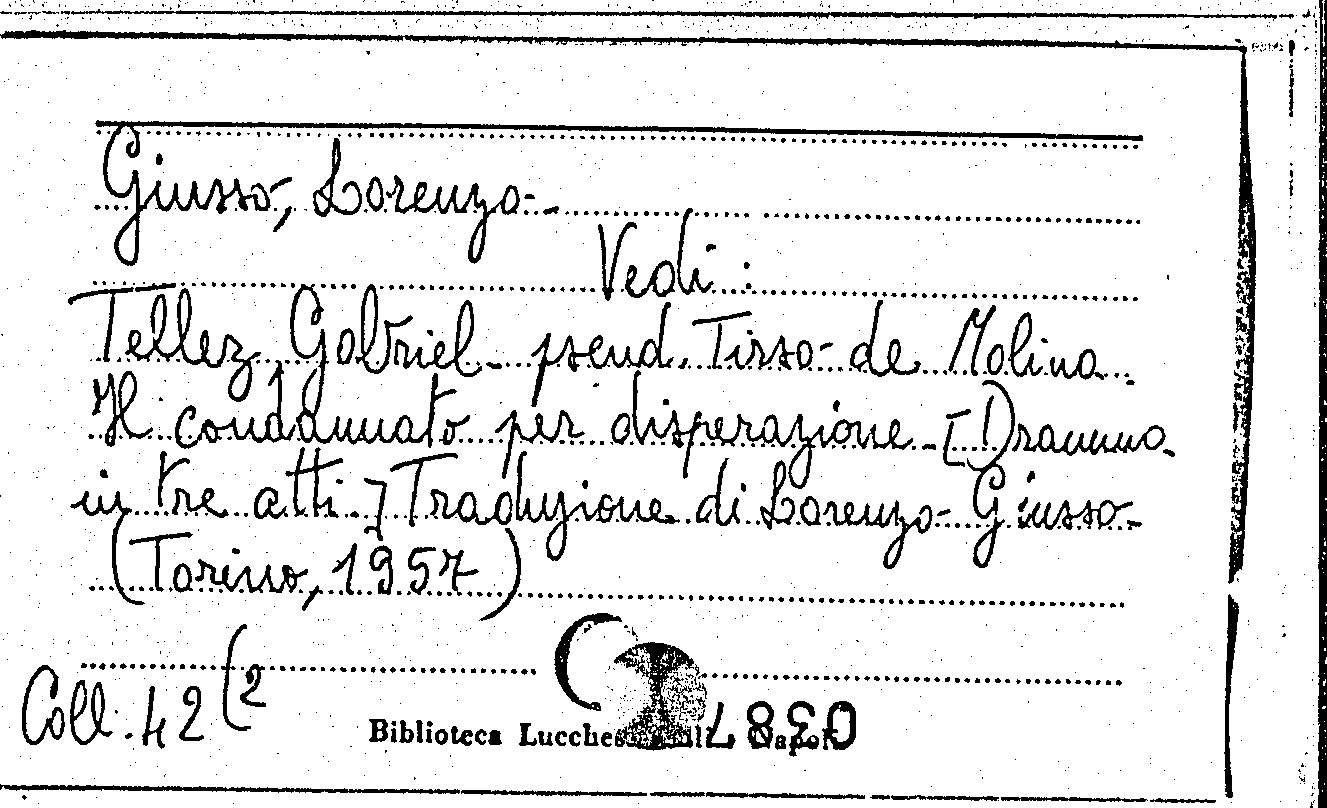 Giusso, Lorenzo -
Vedi :
Tellez Gabriel - pseud. Tirso de Molina.
Il condannato per disperazione - [Dramma
in tre atti.] Traduzione di Lorenzo Giusso -
(Torino, 1957)
Coll. 42 (2
Biblioteca